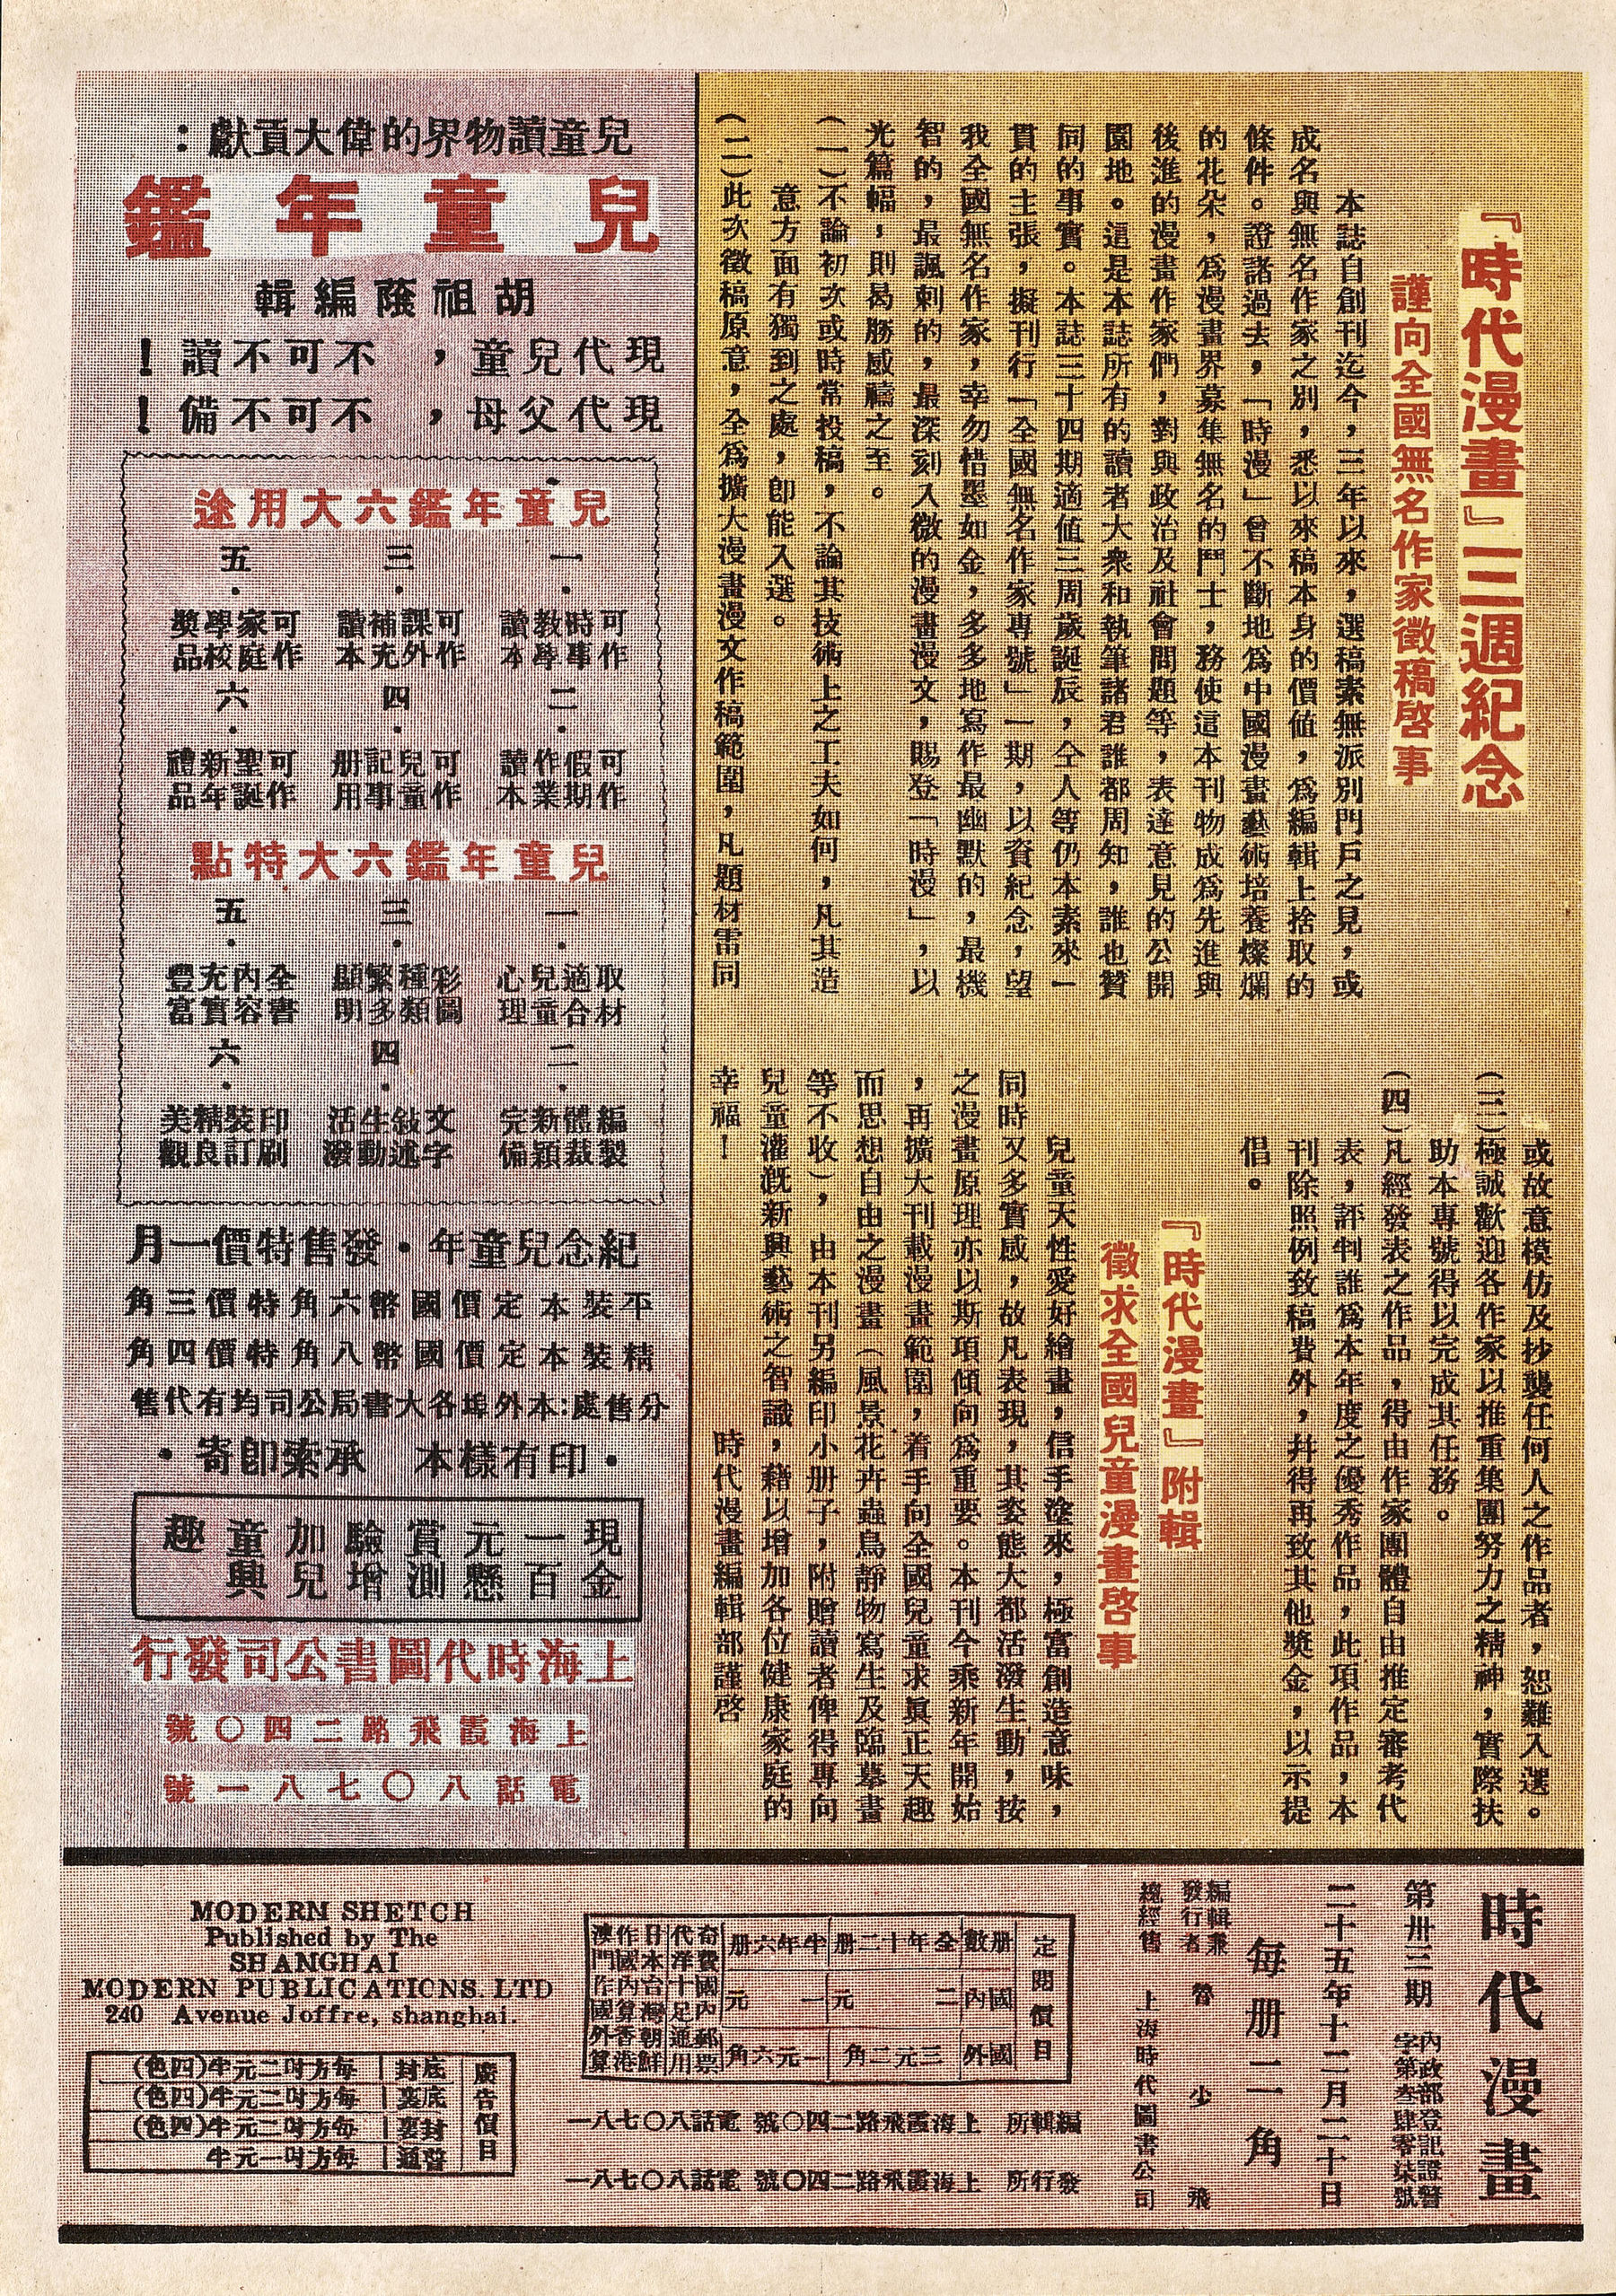 『時代漫畫』三週紀念
謹向全國無名作家徵稿啓事
本誌自創刊迄今，三年以來，選稿素無派別門戶之見，或
成名與無名作家之別，悉以來稿本身的價值，爲編輯上捨取的
條件。證諸過去，「時漫」曾不斷地爲中國漫畫藝術培養燦爛
的花朵，爲漫畫界募集無名的鬥士，務使這本刊物成爲先進與
後進的漫畫作家們，對與政治及社會問題等，表達意見的公開
園地。這是本誌所有的讀者大衆和執筆諸君誰都周知，誰也贊
同的事實。本誌三十四期適值三周歲誕辰，仝人等仍本素來一
貫的主張，擬刊行「全國無名作家專號」一期，以資紀念，望
我全國無名作家，幸勿惜墨如金，多多地寫作最幽默的，最機
智的，最諷刺的，最深刻入微的漫畫漫文，賜登「時漫」，以
光篇幅，則曷勝感禱之至。
（一）不論初次或時常投稿，不論其技術上之工夫如何，凡其造
意方面有獨到之處，卽能入選。
（二）此次徵稿原意，全爲擴大漫畫漫文作稿範圍，凡題材雷同
或故意模仿及抄襲任何人之作品者，恕難入選。
（三）極誠歡迎各作家以推重集團努力之精神，實際扶
助本專號得以完成其任務。
（四）凡經發表之作品，得由作家團體自由推定審考代
表，評判誰爲本年度之優秀作品，此項作品，本
刊除照例致稿費外，幷得再致其他獎金，以示提
倡。
『時代漫畫』附輯
徵求全國兒童漫畫啓事
兒童天性愛好繪畫，信手塗來，極富創造意味，
同時又多實感，故凡表現，其姿態大都活潑生動，按
之漫畫原理亦以斯項傾向爲重要。本刊今乘新年開始
，再擴大刊載漫畫範圍，着手向全國兒童求眞正天趣
而思想自由之漫畫（風景花卉蟲鳥靜物寫生及臨摹畫
等不收），由本刊另編印小册子，附贈讀者俾得專向
兒童灌漑新興藝術之智識，藉以增加各位健康家庭的
幸福！
時代漫畫編輯部謹啓
兒童讀物界的偉大貢獻：
兒童年鑑
胡祖蔭編輯
現代兒童，不可不讀！
現代父母，不可不備！
兒童年鑑六大用途
一．可作時事教學讀本
二．可作假期作業讀本
三．可作課外補充讀本
四．可作兒童記事册用
五．可作家庭學校獎品
六．可作聖誕新年禮品
兒童年鑑六大特點
一．取材適合兒童心理
二．編製體裁新穎完備
三．彩圖種類繁多顯明
四．文字敍述生動活潑
五．全書內容充實豐富
六．印刷裝訂精良美觀
紀念兒童年．發售特價一月
平裝本定價國幣六角特價三角
精裝本定價國幣八角特價四角
分售處：本外埠各大書局公司均有代售
．印有樣本　承索卽寄．
現金一百元懸賞測驗增加兒童興趣
上海時代圖書公司發行
上海霞飛路二四〇號
電話八〇七八一號
時代漫畫
第卅三期
內政部登記證警
字第叁肆零柒號
二十五年十二月二十日
每册二角
編輯兼
發行者　魯少飛
總經售　上海時代圖書公司
定閱價目
册數　全年十二册　半年六册
國內　二元　一元
國外　三元二角　一元六角
寄費國內郵票
代洋十足通用
日本台灣朝鮮
作國內算香港
澳門作國外算
編輯所　上海霞飛路二四〇號　電話八〇七八一
發行所　上海霞飛路二四〇號　電話八〇七八一
MODERN SHETCH
Published by The
SHANGHAI
MODERN PUBLICATIONS. LTD
240 Avenue Joffre, shanghai.
廣告價目
底封　每方吋二元半（四色）
底裏　每方吋二元半（四色）
封裏　每方吋二元半（四色）
普通　每方吋一元半